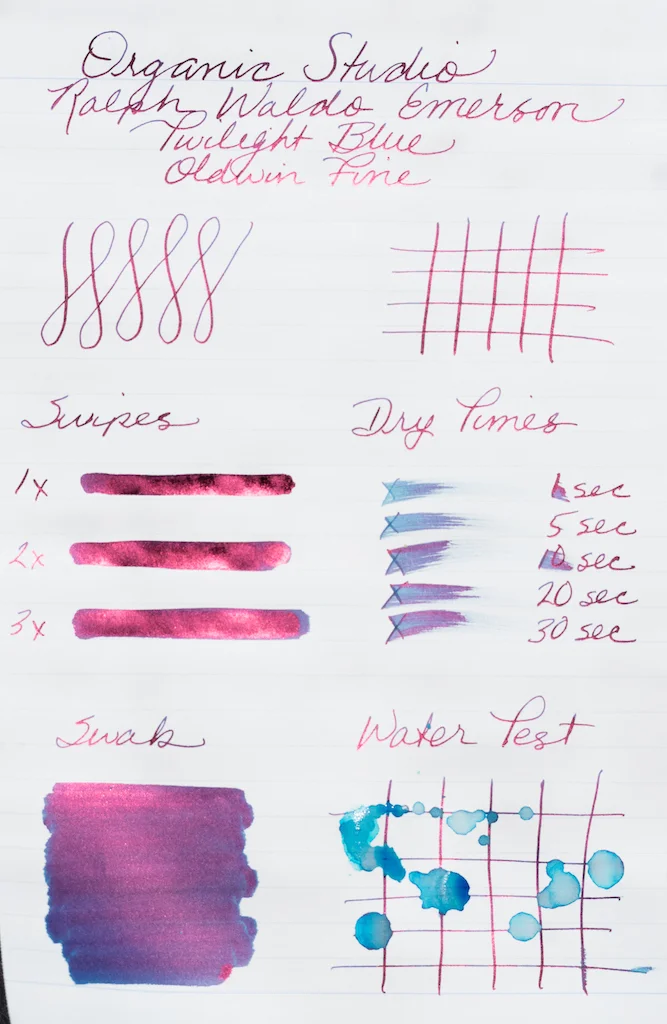 Organic Studio
Ralph Waldo Emerson
Twilight Blue
Oldwin Fine
Swipes
Dry Times
1x
2x
3x
x
sec
x
5 sec
x
sec
x
20 sec
x
30 sec
Swab
Water Test